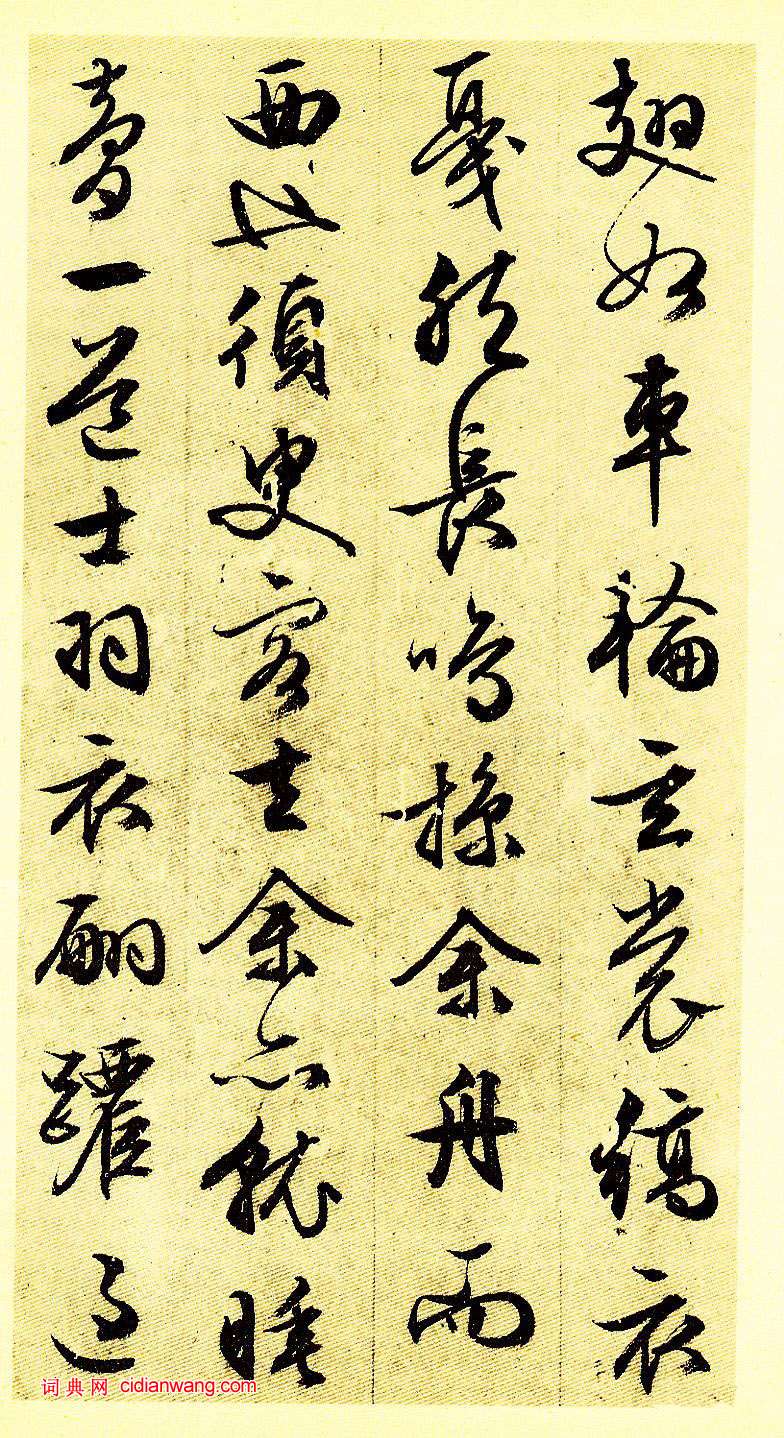 翅如車輪玄裳縞衣
戛然長鳴掠余舟而
西也須臾客去余亦就睡
夢一道士羽衣翩躚過
词典网 cidianwang.com